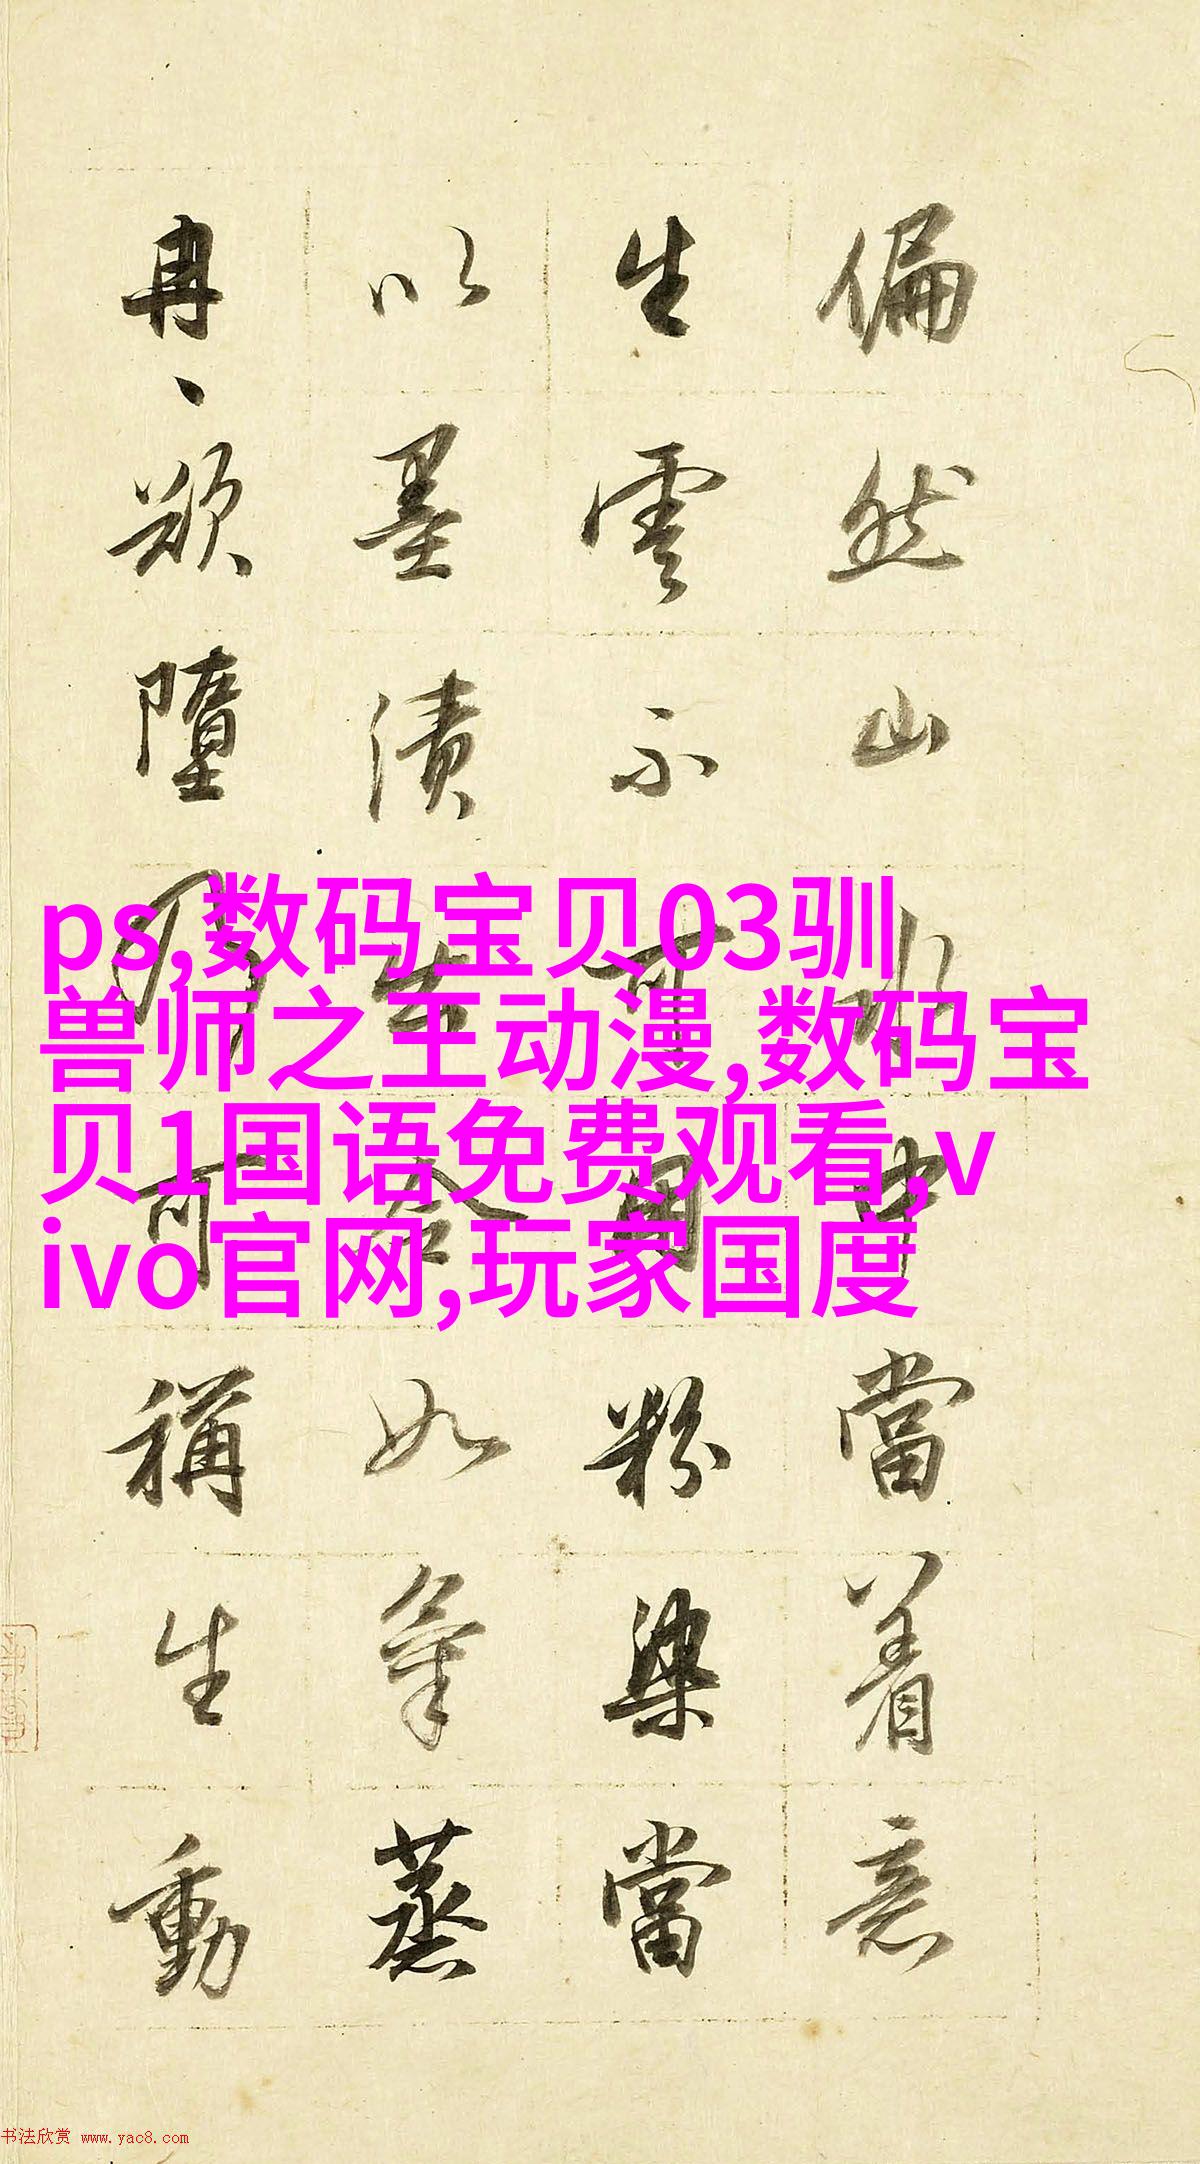 偏然山水中當着意
生雲不可用粉染當
以墨漬出令如氣蒸
冉、欲墮乃可稱生動
ps,数码宝贝03驯
兽师之王动漫,数码宝
贝1国语免费观看,v
ivo官网,玩家国度
书法欣赏 www.yac8.com